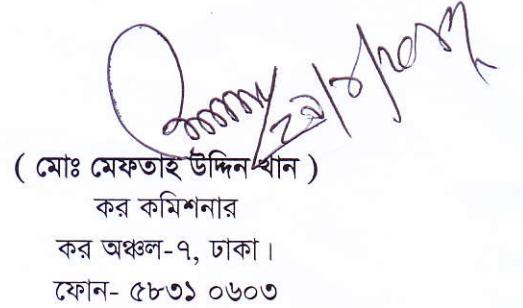 ( মোঃ মেফতাহ উদ্দিন খান )
কর কমিশনার
কর অঞ্চল-৭, ঢাকা।
ফোন- ৫৮৩১ ০৬০৩